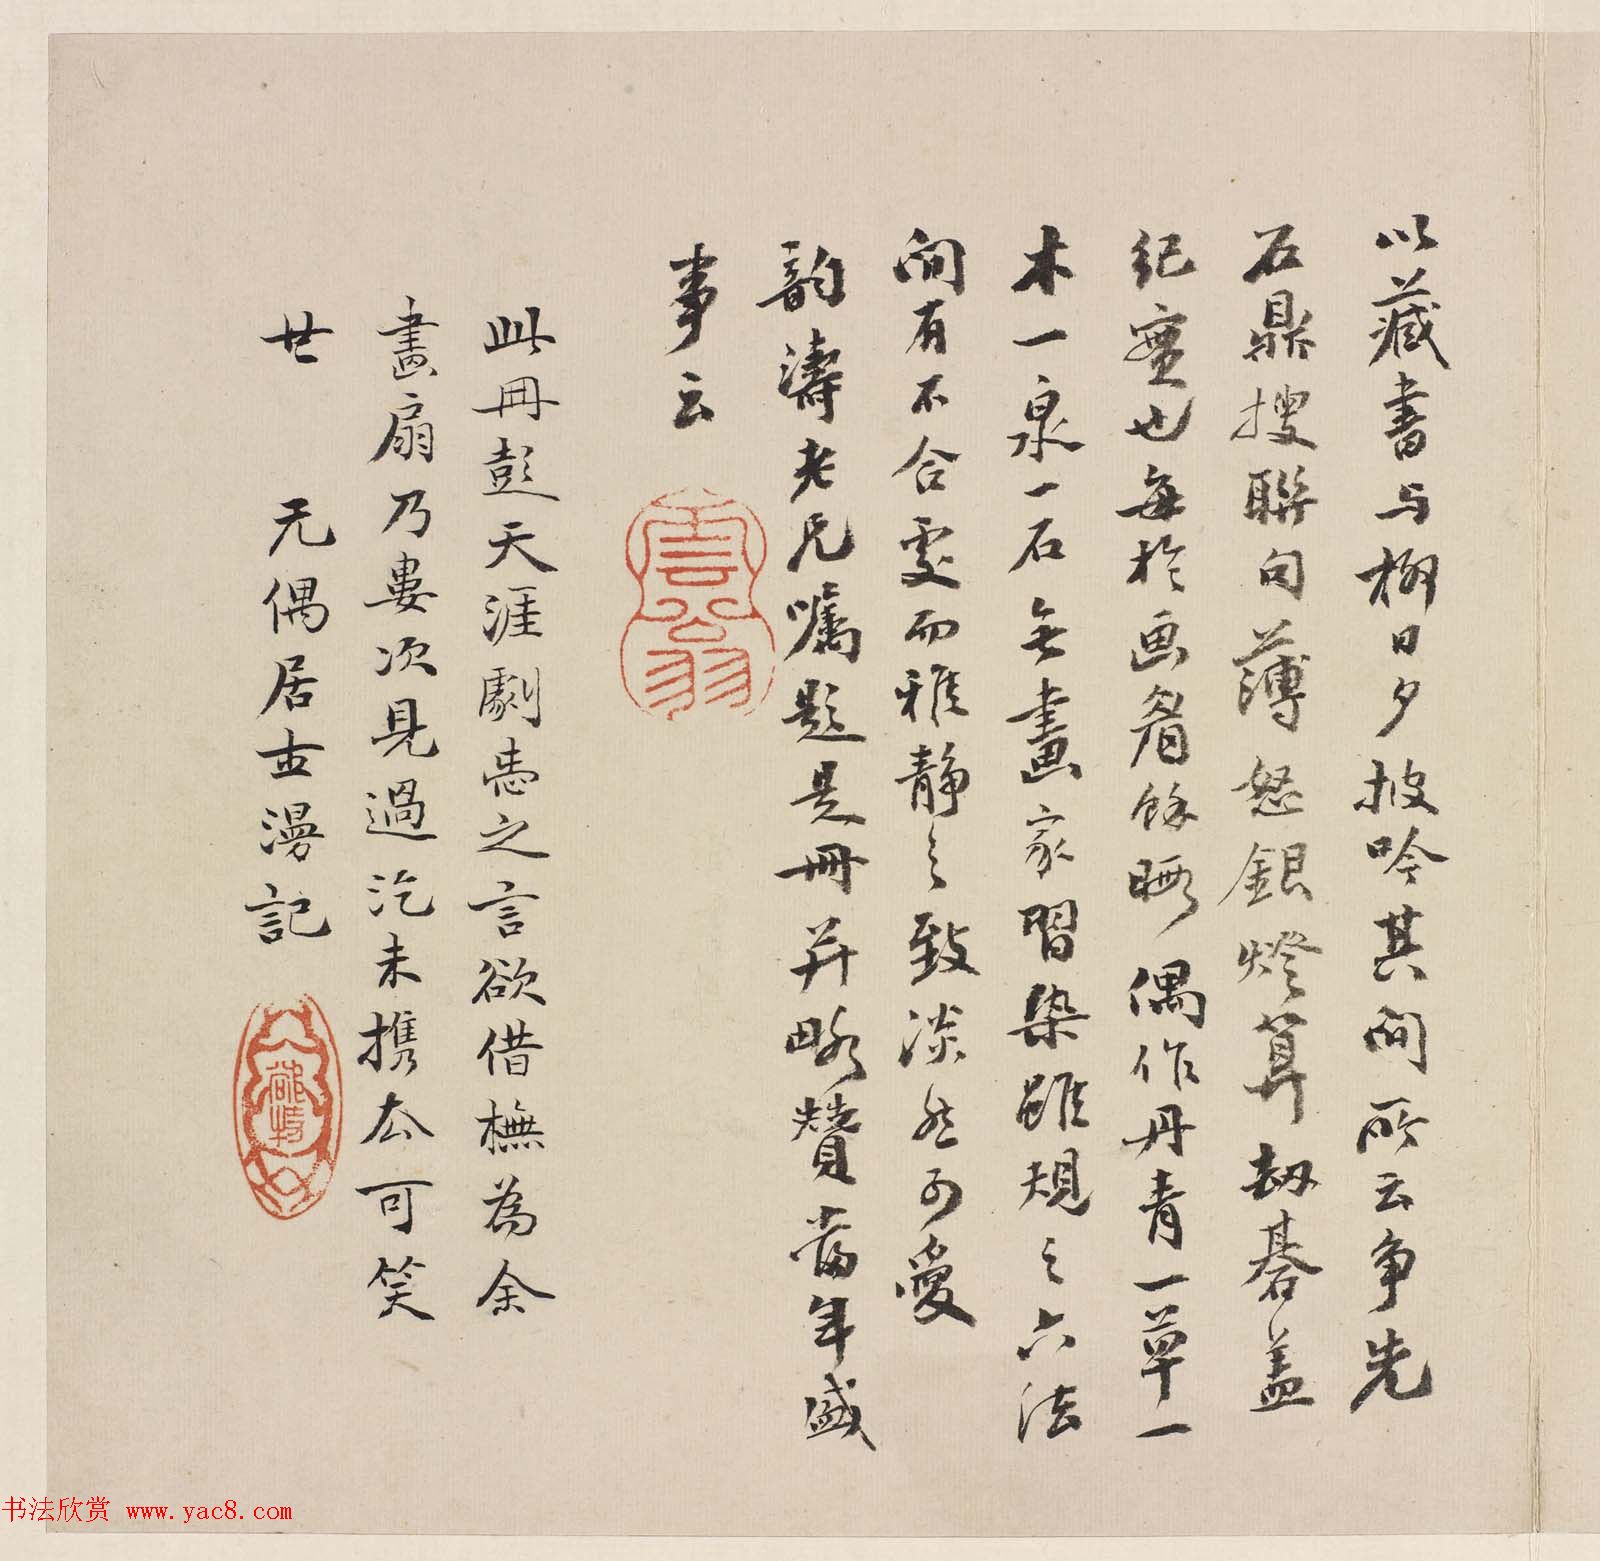 以藏書与柳日夕披吟其间所云争先
石鼎搜聯句薄怒銀燈算劫碁盖
纪實也每於画眉餘暇偶作丹青一草一
木一泉一石無畫家習染雖規之六法
间有不合處而雅静之致淡然可愛
韵濤老兄嘱題是冊并略贊當年盛
事云
雲翁
此冊彭天涯劇之言欲借橅為余
畫扇乃婁次見過汔未携厺可笑
廿 无偶居士漫記
书法欣赏 www.yac8.com